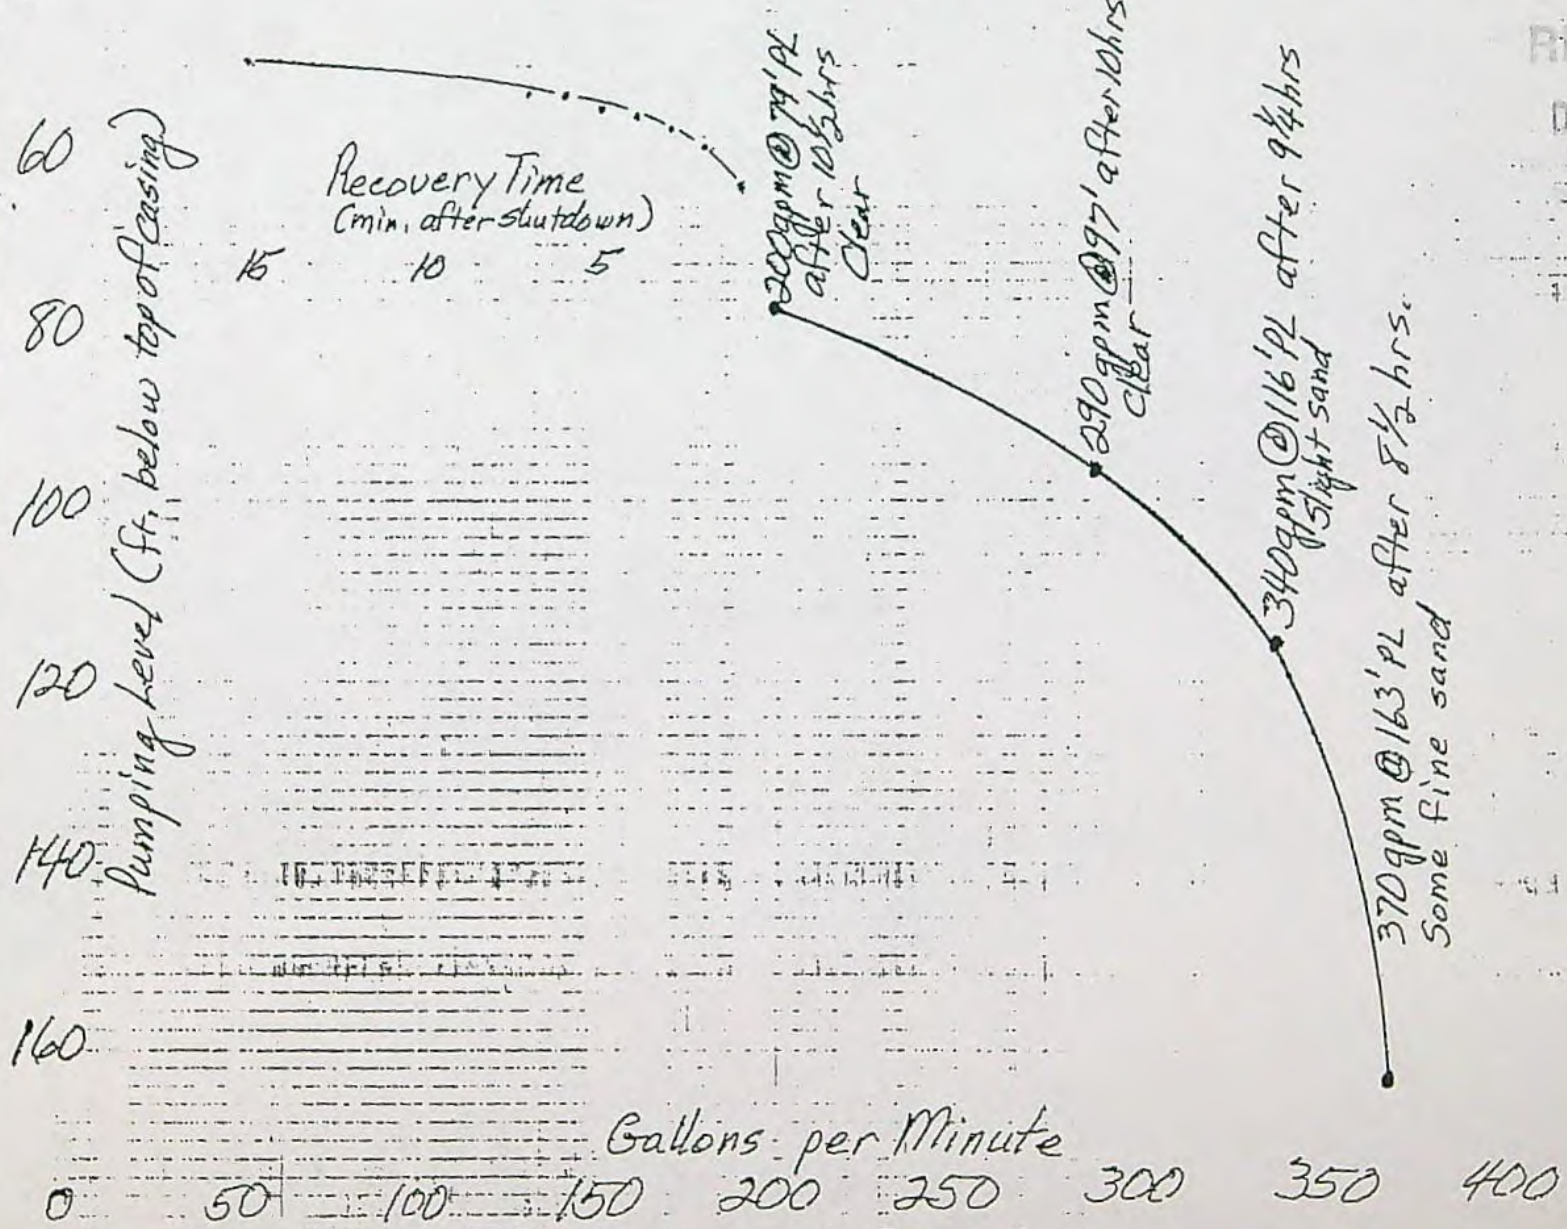 60
80
100
120
140
160
Pumping Level (ft. below top of casing)
Recovery Time
(min. after shutdown)
15 10 5
200gpm@79'PL
after 10½hrs
Clear
290gpm@97' after 10hrs
Clear
340gpm@116'PL after 9¼hrs
Slight sand
370gpm@163'PL after 8½hrs.
Some fine sand
Gallons per Minute
0 50 100 150 200 250 300 350 400